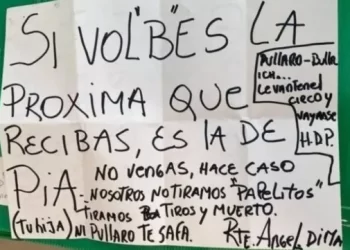 SI VOL"B"ES LA
PROXIMA QUE
RECIBAS, ES LA DE
PIA.
(TU hijA)
NO VENGAS, HACE CASO
NOSOTROS NO TIRAMOS "PAPELITOS"
TIRAMOS TIROS Y MUERTO.
NI PULLARO TE SAFA.
RTE. ANGEL DI MA
PULLARO-Bulla
ICH...
LevanTenel
CIRCO y
VAYANSE
HDP.